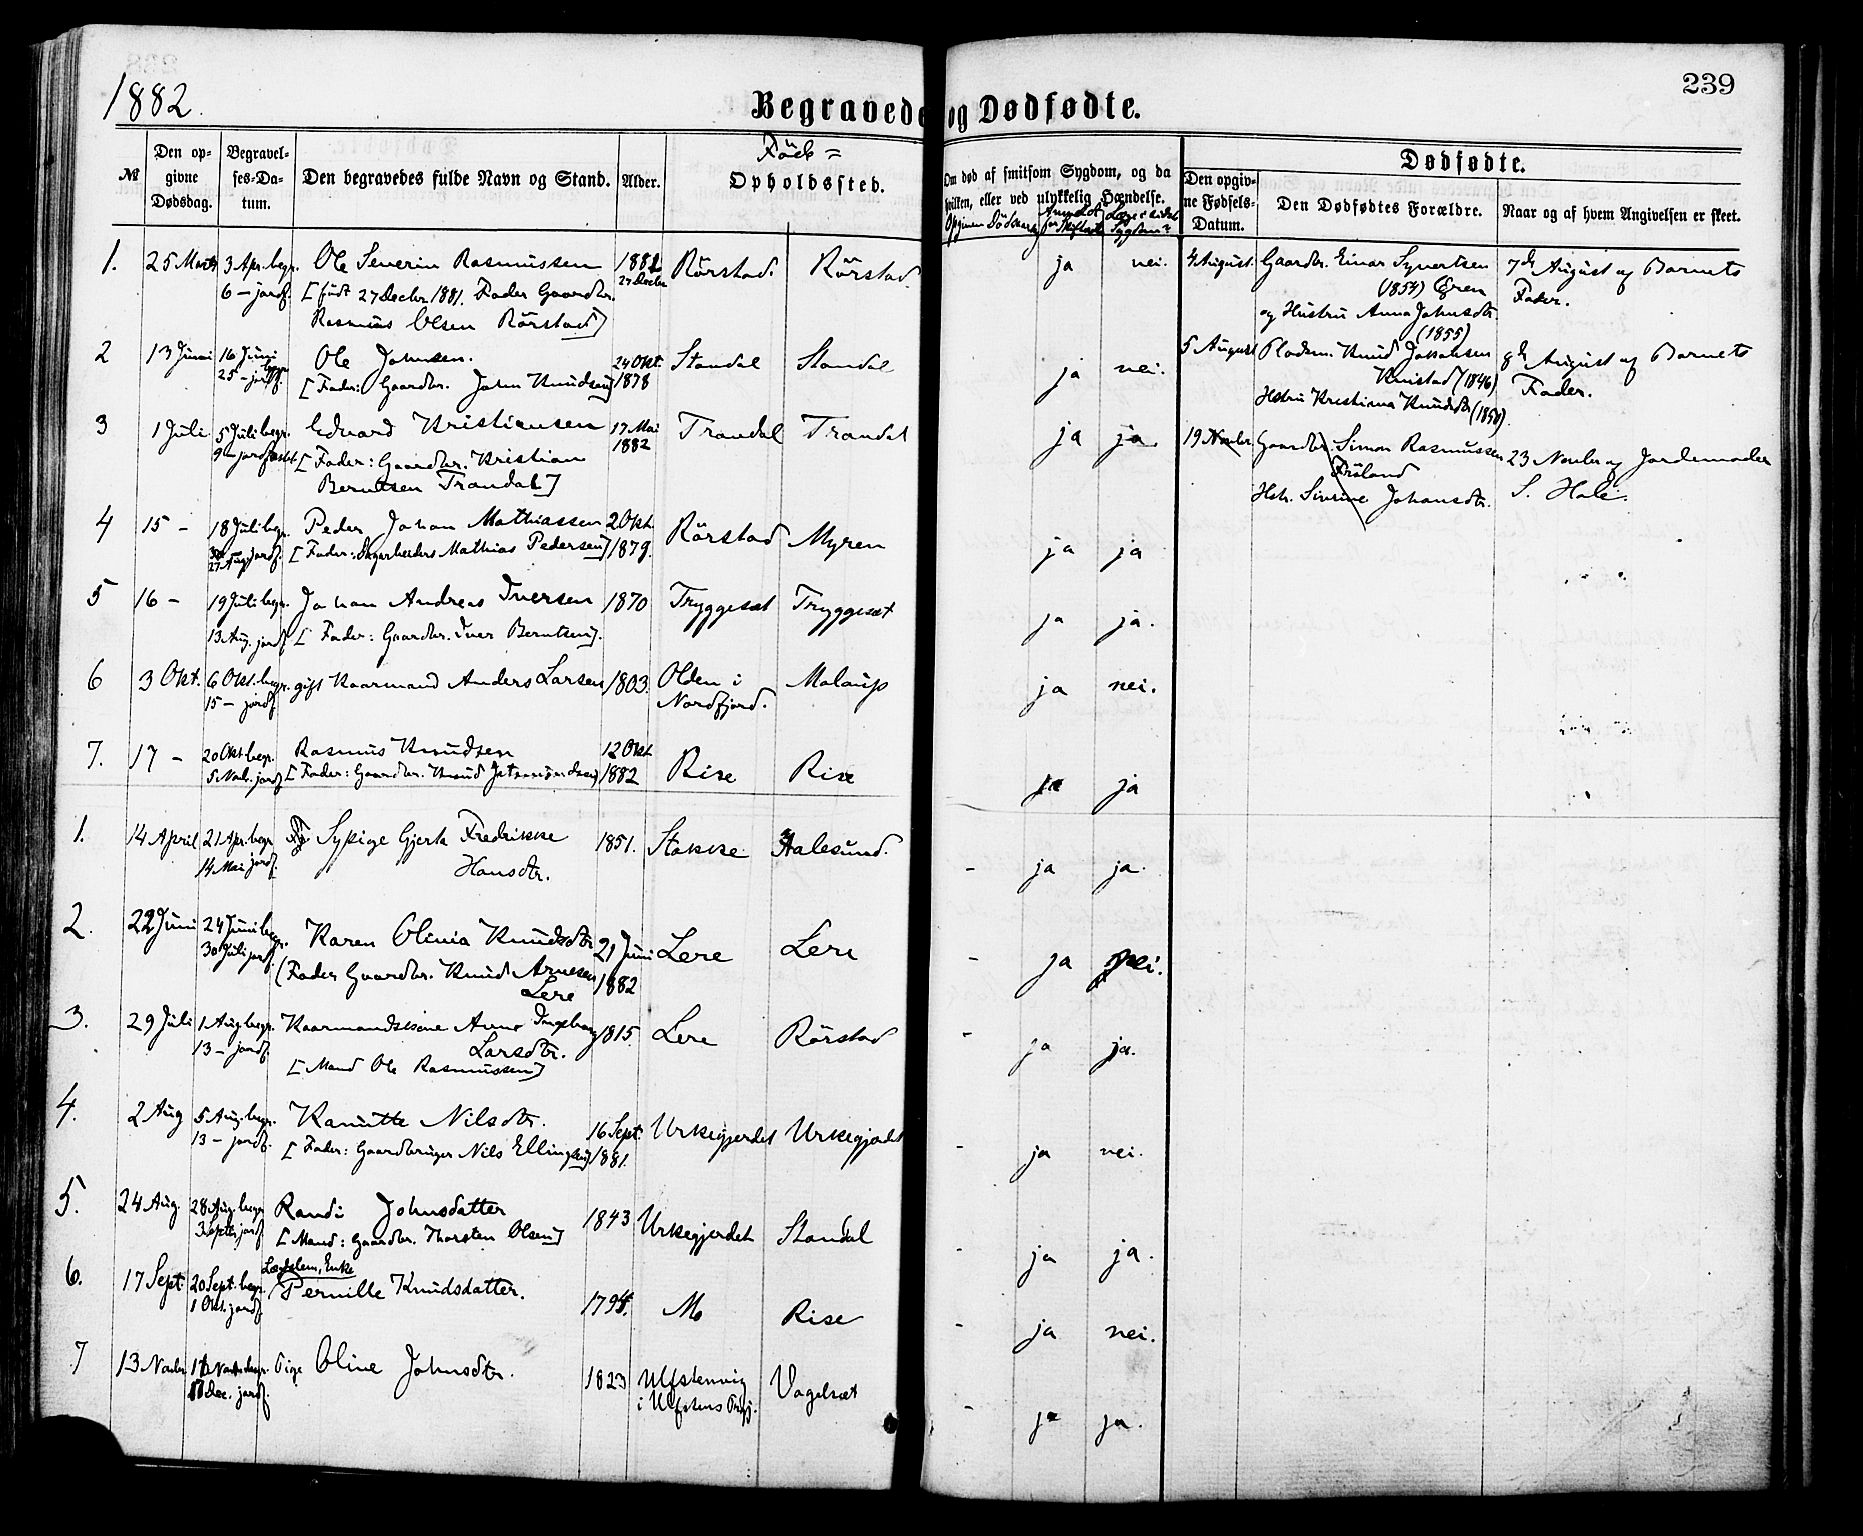 1882.
239
Begravede og Dødfødte.
№
Den op-
givne
Dødsdag.
Begravel-
ses-Da-
tum.
Den begravedes fulde Navn og Stand.
Alder.
Föde =
Opholdssted.
Om død af smitsom Sygdom, og da
hvilken, eller ved ulykkelig Hændelse.
Dødfødte.
Den opgiv-
ne Fødsels-
Datum.
Den Dødfødtes Forældre.
Naar og af hvem Angivelsen er skeet.
1. 25 Marts 3 Apr. begr. Ole Severin Rasmussen 1881 Rörstad Rörstad ja nei.
6 — jordf. [født 27 Decbr. 1881. Fader Gaardbr. 27 Decbr
Rasmus Olsen Rörstad]
2 13 Juni 16 Juni begr. Ole Johnsen. 24 Okt. Standal Standal ja nei.
25 — jordf. [Fader: Gaardbr. John Knudsen] 1878
3 1 Juli 5 Juli begr. Edvard Kristiansen 17 Mai Trandal Trandal ja ja
9 — jordfæstet [Fader: Gaardbr. Kristian 1882
Berntsen Trandal]
4 15 — 18 Juli begr. Peder Johan Mathiassen 2 Okt. Rörstad Myren ja ja
27 Aug jordf. [Fader: Mathias Pedersen] 1879.
5 16 — 19 Juli begr. Johan Andreas Iversen 1870 Tryggeset Tryggeset ja ja.
13 Aug. jordf. [Fader: Gaardbr. Iver Berntsen].
6 3 Okt. 6 Okt. begr. gift Kaarmand Anders Larsen 1803. Olden i Malaup ja nei.
15 — jordf. Nordfjord.
7. 17 — 20 Okt begr. Rasmus Knudsen 12 Okt Rise Rise ja ja
5 Novbr. jordf. [Fader: Gaardbr. Knud 1882
1. 14 April 21 Apr. begr. Pige Gjerta Fredrikke 1851. Stokke Aalesund. - ja ja.
14 Mai jordf. Hansdtr.
2. 22 Juni 24 Juni begr. Karen Olivia Knudsdtr 21 Juni Lere Lere - ja nei.
30 Juli jordf. (Fader Gaardbr. Knud Arnesen 1882
Lere
3. 29 Juli 1 Aug begr. Kaarmandskone Anne Ingeborg 1815. Lere Rörstad - ja ja.
13 — jordf. Larsdtr.
[Mand Ole Rasmussen]
4. 2 Aug 5 Aug. begr. Kanutte Nilsdtr. 16 Sept. Urkegjerdet Urkegjerdet - ja nei.
13 — jordf. [Fader: Gaardbruger Nils Ellingsen] 1881.
5. 24 Aug. 28 Aug. begr Randi Johnsdatter 1843 Urkegjerdet Standal - ja ja.
3 Septbr. jordf. [Mand: Gaardbr. Thorsten Olsen]
6. 17 Sept. 20 Sept. begr. Enke
1 Okt. jordf. Pernille Knudsdatter. 1794. Mo Rise - ja nei.
7 13 Novbr. begr. Pige Oline Johnsdtr. 1823 Ulfstenvig Vagelset - ja ja.
Dec. jordf. i Ulfstens
4 August. Gaardbr. Einar Syvertsen 7de August af Barnets
(1854) Øren Fader.
og Hustru Anna Johnsdtr.
(1855)
5 August Knud Jakobsen 8de August af Barnets
(1846) Fader.
Hstru Kristiana Knudsdtr
19 Novbr. Gaardbr. Simon Rasmussen 23 Novbr af Jordemoder
S. Hole.
Hstr. Sivrine Johansdtr.